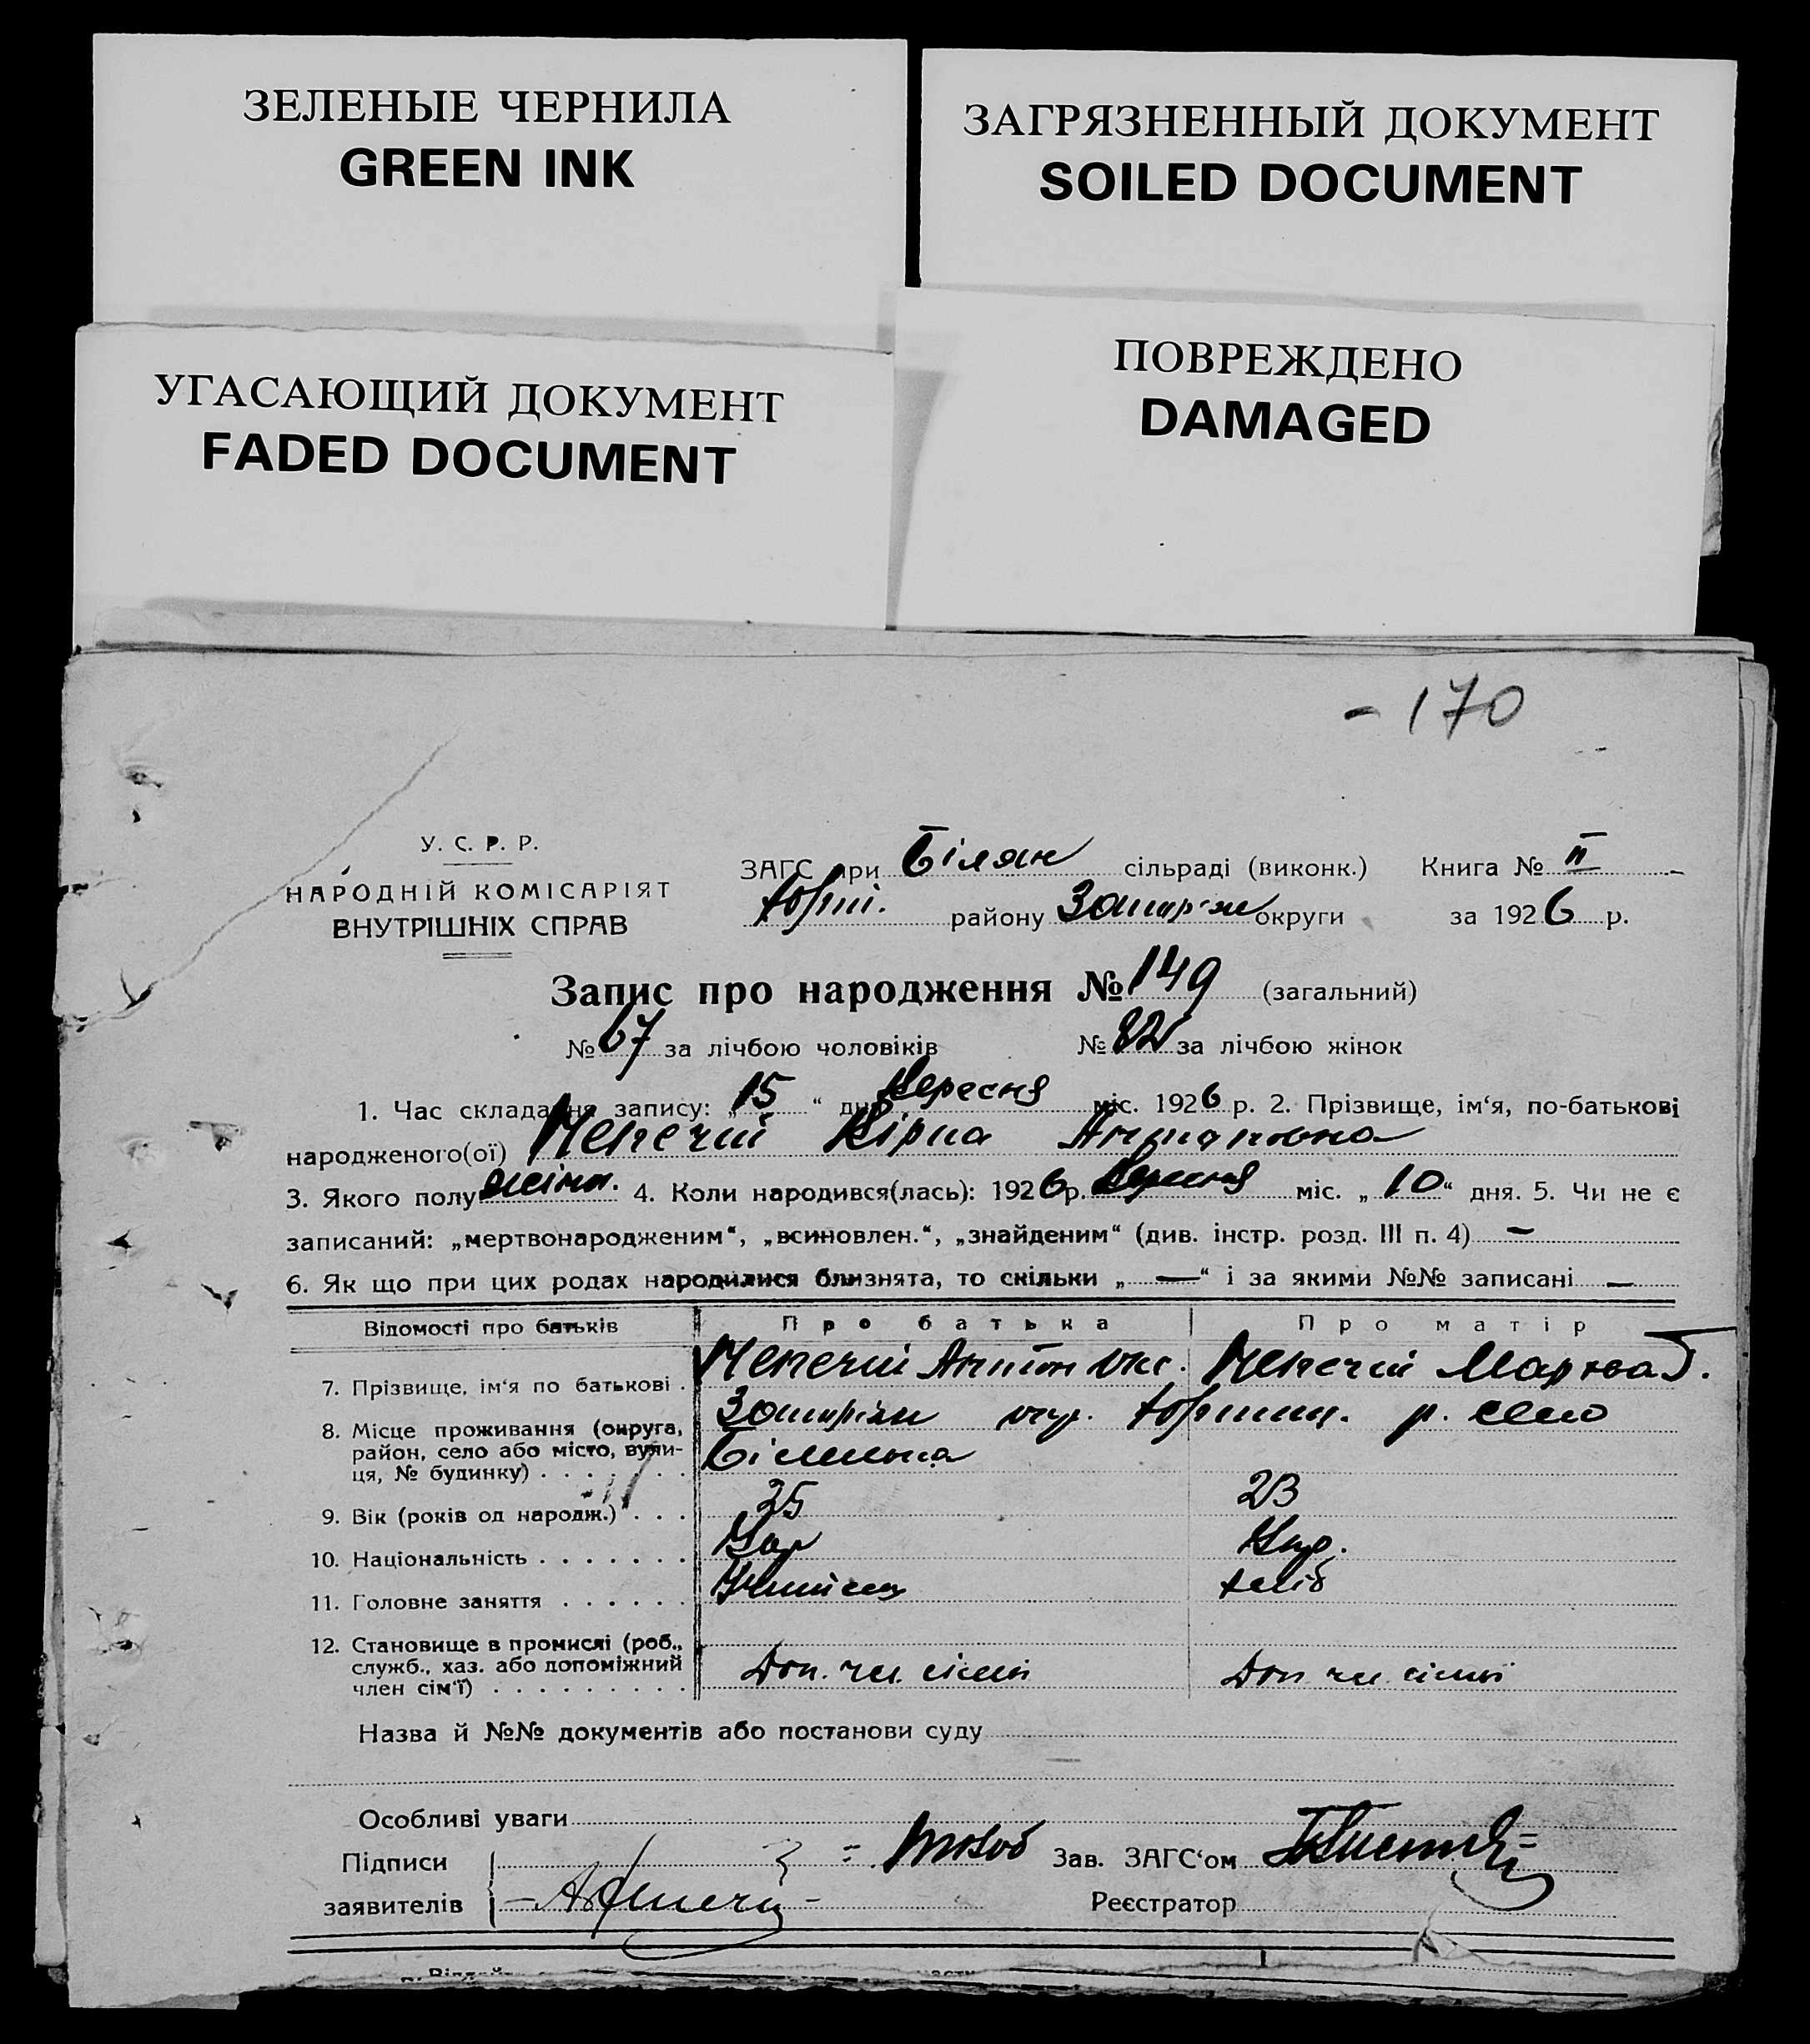 ЗЕЛЕНЫЕ ЧЕРНИЛА
GREEN INK
ЗАГРЯЗНЕННЫЙ ДОКУМЕНТ
SOILED DOCUMENT
УГАСАЮЩИЙ ДОКУМЕНТ
FADED DOCUMENT
ПОВРЕЖДЕНО
DAMAGED
- 170
У. С. Р. Р.
НАРОДНІЙ КОМІСАРІЯТ
ВНУТРІШНІХ СПРАВ
ЗАГС при Білян сільраді (виконк.) Книга № II
району округи за 1926 р.
Запис про народження № 149 (загальний)
№ 67 за лічбою чоловіків № 82 за лічбою жінок
1. Час складання запису: „15“ дня Вересня міс. 1926 р. 2. Прізвище, ім‘я, по-батькові
народженого(ої) Кіриа Антановна
3. Якого полу жіноч. 4. Коли народився(лась): 1926 р. Вересня міс. „10“ дня. 5. Чи не є
записаний: „мертвонародженим“, „всиновлен.“, „знайденим“ (див. інстр. розд. III п. 4) —
6. Як що при цих родах народилися близнята, то скільки „—“ і за якими №№ записані —
Відомості про батьків Про батька Про матір
7. Прізвище, ім‘я по батькові . Антон
8. Місце проживання (округа, район, село або місто, вулиця, № будинку) . . . . . . окр. р. село
9. Вік (років од народж.) . . . 25 23
10. Національність . . . . . . . Укр Укр.
11. Головне заняття . . . . . . хліб
12. Становище в промислі (роб., служб., хаз. або допоміжний член сім‘ї) . . . . . . . . . Доп. чл. сімьї Доп. чл. сімьї
Назва й №№ документів або постанови суду
Особливі уваги
Підписи
заявителів
Зав. ЗАГС‘ом
Реєстратор